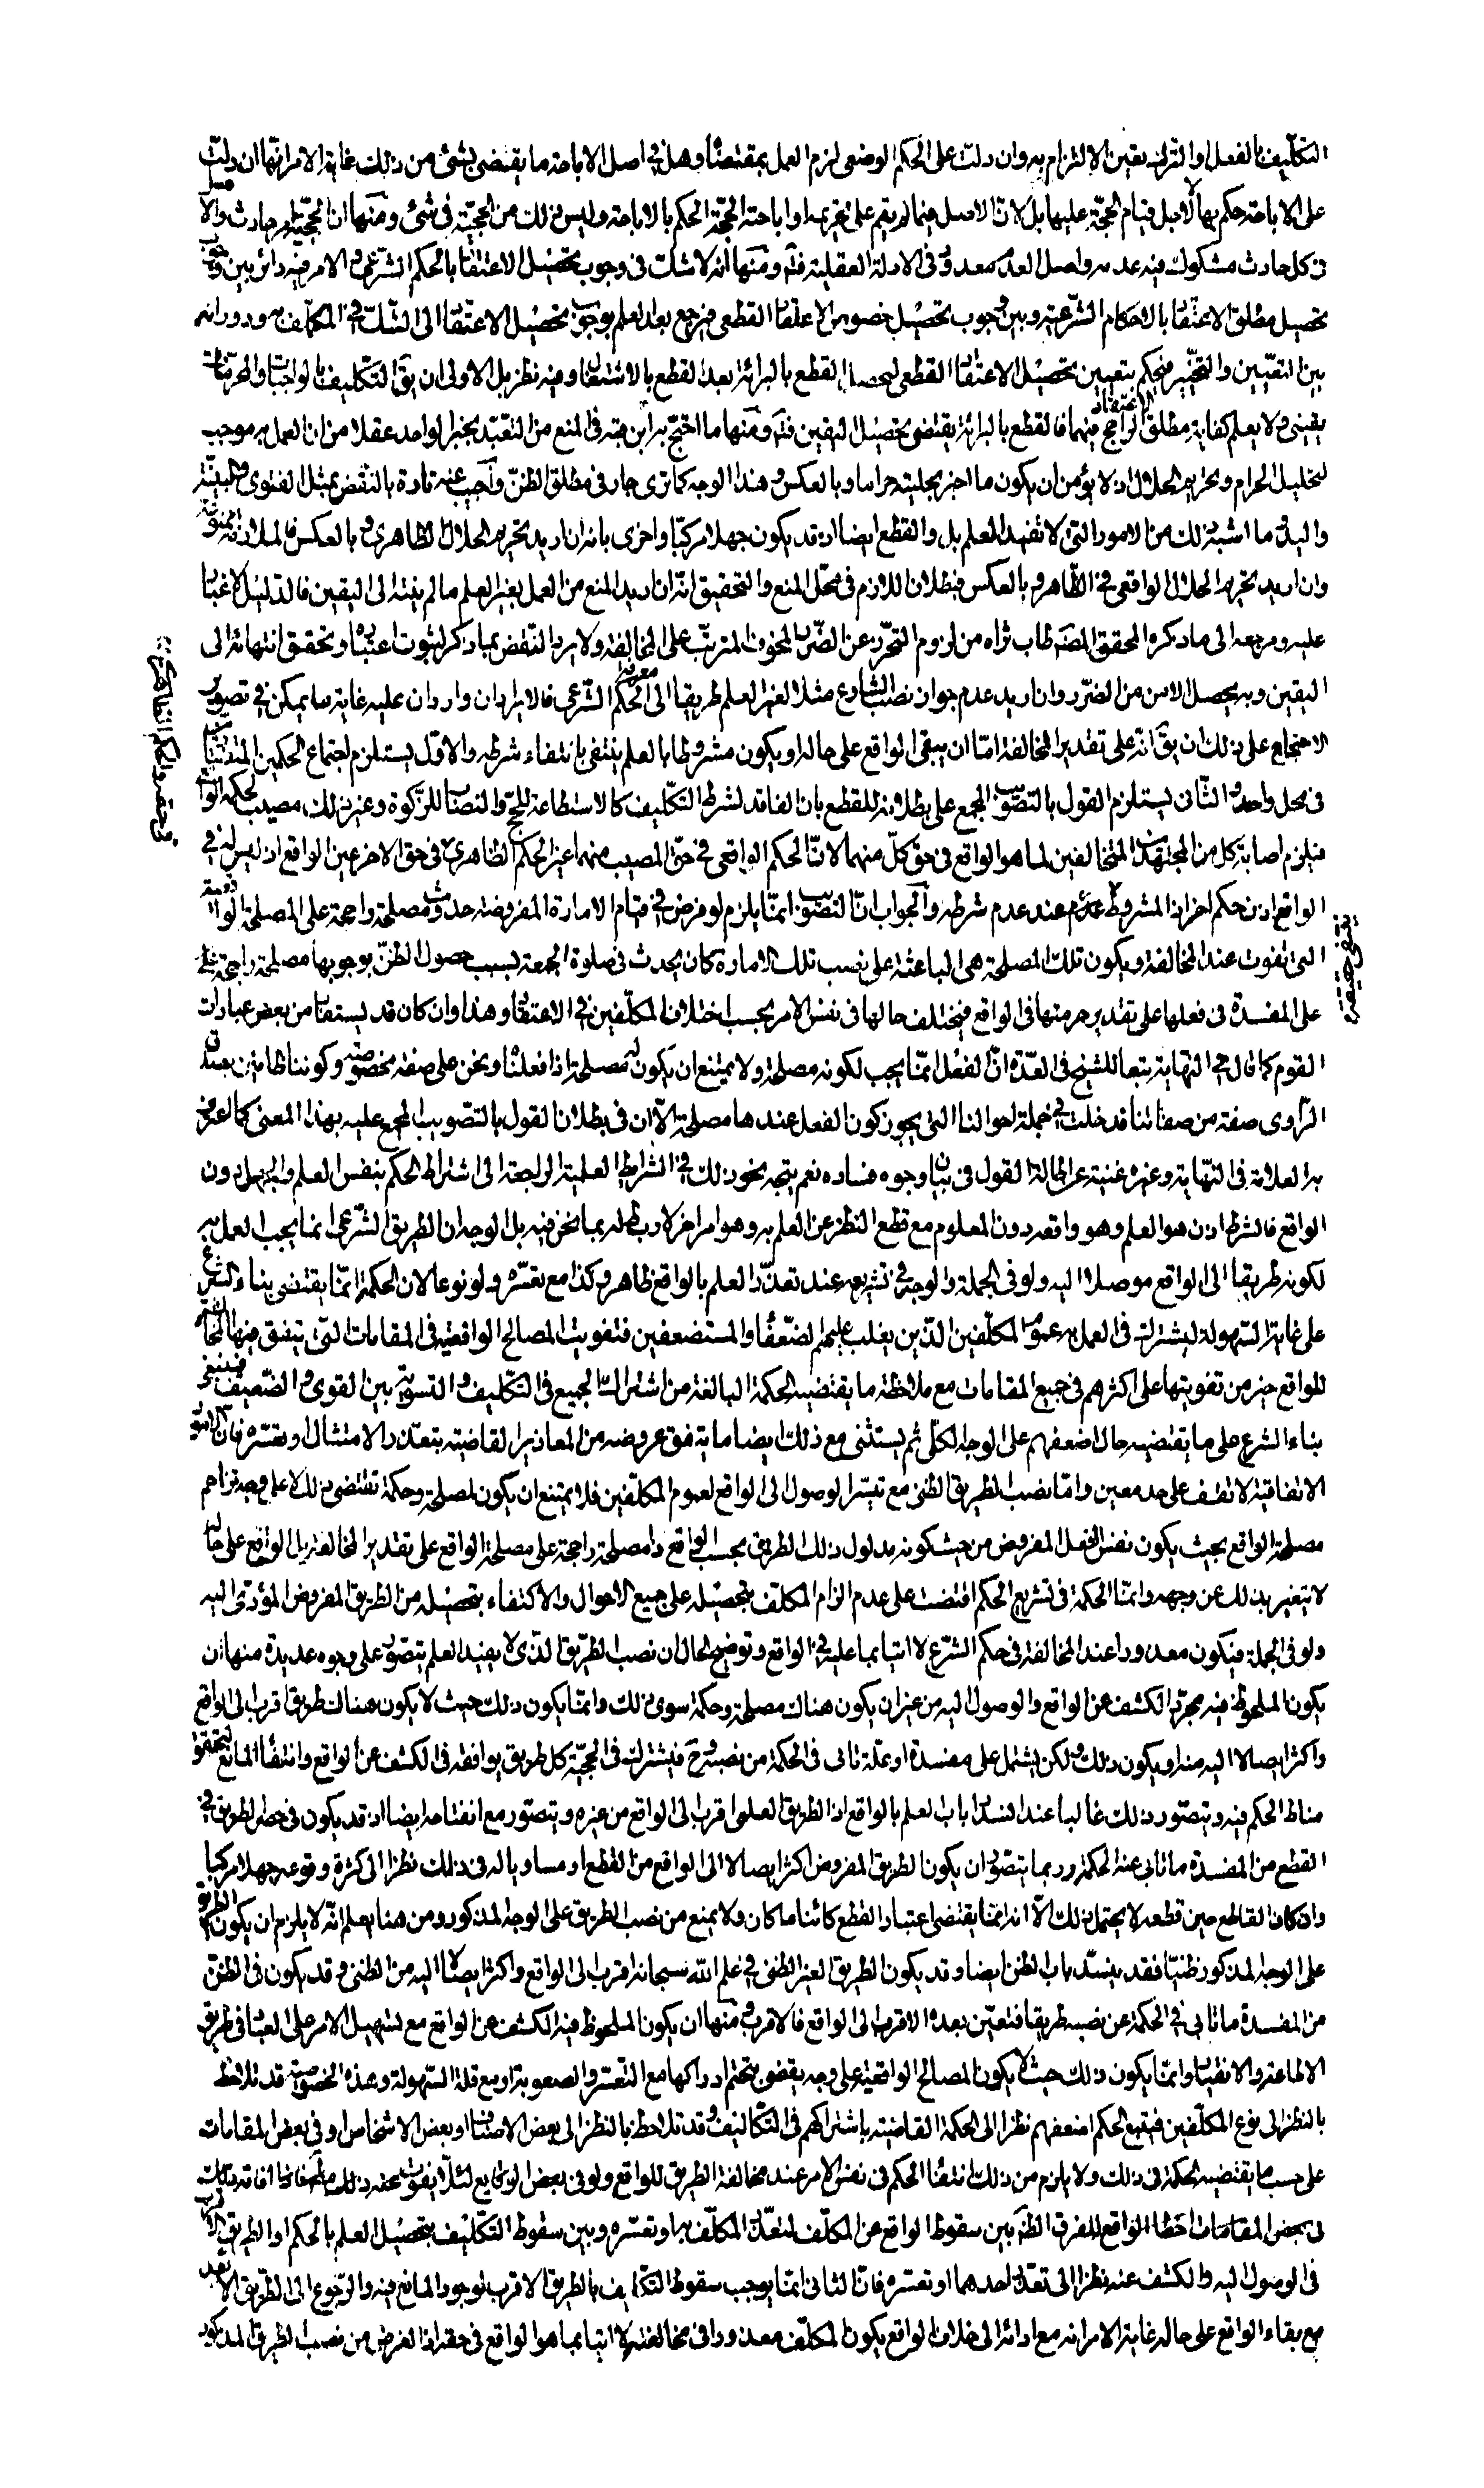 التكليف بالفعل او الترك تعين الالتزام به وان دلت على الحكم الوضعى لزم العمل بمقتضاها وهل فى اصل الاباحة ما يقتضى بشئ من ذلك غاية الامر انها ان دلت
على الاباحة حكم بها لا لاجل قيام الحجة عليها بل لان الاصل فيما لم يقم على تحريمه او اباحته الحجة الحكم بالاباحة وليس ذلك من الحجية فى شئ ومنها ان الحجية امر حادث والاصل
فى كل حادث مشكوك فيه عدمه واصل العدم معدود فى الادلة العقلية فتم ومنها انه لا شك فى وجوب تحصيل الاعتقاد بالحكم الشرعى والامر فيه دائر بين وجوب
تحصيل مطلق الاعتقاد بالاحكام الشرعية وبين وجوب تحصيل خصوص الاعتقاد القطعى فيرجع بعد العلم بوجوب تحصيل الاعتقاد الى الشك فى المكلف به ودورانه
بين التعيين والتخيير فيحكم بتعيين تحصيل الاعتقاد القطعى ليحصل القطع بالبرائة بعد القطع بالاشتغال وفيه نظر بل الاولى ان يق التكليف بالواجبات والمحرمات
يقينى ولا يعلم كفاية مطلق الاعتقاد الراجح فيهما فالقطع بالبرائة يقتضى تحصيل اليقين فتم ومنها ما احتج به ابن قبة فى المنع من التعبد بخبر الواحد عقلا من ان العمل به موجب
لتحليل الحرام وتحريم الحلال اذ لا يؤمن ان يكون ما اخبر بحليته حراما وبالعكس وهذا الوجه كما ترى جار فى مطلق الظن واجيب عنه تارة بالنقض بمثل الفتوى والبينة
واليد وما اشبه ذلك من الامور التى لا تفيد العلم بل والقطع ايضا اذ قد يكون جهلا مركبا واخرى بانه ان اريد تحريم الحلال الظاهرى وبالعكس فالملازمة ممنوعة
وان اريد تحريم الحلال الواقعى فى الظاهر وبالعكس فبطلان اللازم فى محل المنع والتحقيق انه ان اريد المنع من العمل بغير العلم ما لم ينته الى اليقين فالدليل لا غبار
عليه ومرجعه الى ما ذكره المحقق المصنف طاب ثراه من لزوم التحرز عن الضرر المخوف المترتب على المخالفة ولا يرد النقض بما ذكر لثبوت اعتباره وتحقق انتهائه الى
اليقين وبه يحصل الامن من الضرر وان اريد عدم جواز نصب الشارع مثلا لغير العلم طريقا الى معرفة الحكم الشرعى فالايرادان واردان عليه غاية ما يمكن فى تصوير
الاحتجاج على ذلك ان يق انه على تقدير المخالفة اما ان يبقى الواقع على حاله او يكون مشروطا بالعلم ينتفى بانتفاء شرطه والاول يستلزم اجتماع الحكمين المتضادين
فى محل واحد والثانى يستلزم القول بالتصويب المجمع على بطلانه للقطع بان الفاقد لشرط التكليف كالاستطاعة للحج والنصاب للزكوة وغير ذلك مصيب لحكمه الواقعى
فيلزم اصابة كل من المجتهدين المتخالفين لما هو الواقع فى حق كل منهما لان الحكم الواقعى فى حق المصيب منهما غير الحكم الظاهرى فى حق الاخر عين الواقع اذ ليس له فى
الواقع اذن حكم اخر اذ المشروط عدم عند عدم شرطه والجواب ان التصويب انما يلزم لو فرض فى قيام الامارة المفروضة حدوث مصلحة راجحة على المصلحة الواقعية
التى تفوت عند المخالفة ويكون تلك المصلحة هى الباعثة على نصب تلك الامارة كان يحدث فى صلوة الجمعة بسبب حصول الظن بوجوبها مصلحة راجحة
على المفسدة فى فعلها على تقدير حرمتها فى الواقع فيختلف حالها فى نفس الامر بحسب اختلاف المكلفين فى الاعتقاد وهذا وان كان قد يستفاد من بعض عبارات
القوم كما قال فى النهاية تبعا للشيخ فى العدة ان الفعل انما يجب لكونه مصلحة ولا يمتنع ان يكون مصلحة اذا فعلناه ونحن على صفة مخصوصة وكوننا ظانين بصدق
الراوى صفة من صفاتنا فدخلت فى جملة احوالنا التى يجوز كون الفعل عندها مصلحة الا ان فى بطلان القول بالتصويب المجمع عليه بهذا المعنى كما اعترف
به العلامة فى النهاية وغيره غنية عن اطالة القول فى بيان وجوه فساده نعم يتجه نحو ذلك فى الشرائط العلمية الراجعة الى اشتراط الحكم بنفس العلم والجهل دون
الواقع فالشرط اذن هو العلم وهو واقعه دون المعلوم مع قطع النظر عن العلم به وهو امر اخر لا ربط له بما نحن فيه بل الوجه ان الطريق الشرعى انما يجب العمل به
لكونه طريقا الى الواقع موصلا اليه ولو فى الجملة والوجه فى تشريعه عند تعذر العلم بالواقع ظاهر وكذا مع تعسره ولو نوعا لان الحكمة انما يقتضى بناء الشرع
على غاية السهولة ليشترك فى العمل به عموم المكلفين الذين يغلب عليهم الضعفاء والمستضعفين فتفويت المصالح الواقعية فى المقامات التى يتفق فيها المخالفة
للواقع خير من تفويتها على اكثرهم فى جميع المقامات مع ملاحظة ما يقتضيه الحكمة البالغة من اشتراك الجميع فى التكليف والتسوية بين القوى والضعيف فينبغى
بناء الشرع على ما يقتضيه حال اضعفهم على الوجه الكلى ثم يستثنى مع ذلك ايضا ما يتفق عروضه من المعاذير القاضية بتعذر الامتثال او تعسره فان الامور
الاتفاقية لا تقف على حد معين واما نصب الطريق الظنى مع تيسر الوصول الى الواقع لعموم المكلفين فلا يمتنع ان يكون لمصلحة وحكمة تقتضى ذلك لا على وجه تزاحم
مصلحة الواقع بحيث يكون نفس الفعل المفروض من حيث كونه مدلول ذلك الطريق بحسب الواقع ذا مصلحة راجحة على مصلحة الواقع على تقدير المخالفة بل الواقع على حاله
لا يتغير بذلك عن وجهه وانما الحكمة فى تشريع الحكم اقتضت على عدم الزام المكلف بتحصيله على جميع الاحوال والاكتفاء بتحصيله من الطريق المفروض المؤدى اليه
ولو فى الجملة فيكون معذورا عند المخالفة فى حكم الشرع لا اتيا بما عليه فى الواقع وتوضيح الحال ان نصب الطريق الذى لا يفيد العلم يتصور على وجوه عديدة منها ان
يكون الملحوظ فيه مجرد الكشف عن الواقع والوصول اليه من غير ان يكون هناك مصلحة وحكمة سوى ذلك وانما يكون ذلك حيث لا يكون هناك طريق اقرب الى الواقع
واكثر ايصالا اليه منه او يكون ذلك ولكن يشتمل على مفسدة او علة تابى فى الحكمة من نصبه وح فيشترك فى الحجية كل طريق يوافقه فى الكشف عن الواقع وانتفاء المانع لتحقق
مناط الحكم فيه ويتصور ذلك غالبا عند انسداد باب العلم بالواقع اذ الطريق العلمى اقرب الى الواقع من غيره ويتصور مع انفتاحه ايضا اذ قد يكون فى حصر الطريق فى
القطع من المفسدة ما تابى عنه الحكمة وربما يتصور ان يكون الطريق المفروض اكثر ايصالا الى الواقع من القطع او مساويا له فى ذلك نظرا الى كثرة وقوعه جهلا مركبا
وان كان القاطع حين قطعه لا يحتمل ذلك الا انه انما يقتضى اعتبار القطع كائنا ما كان ولا يمنع من نصب الطريق على الوجه المذكور ومن هنا يعلم انه لا يلزم ان يكون الطريق
على الوجه المذكور ظنيا فقد ينسد باب الظن ايضا وقد يكون الطريق الغير الظنى فى علم الله سبحانه اقرب الى الواقع واكثر ايصالا اليه من الظنى وقد يكون فى الظن
من المفسدة ما تابى فى الحكمة عن نصبه طريقا فتعين بعده الاقرب الى الواقع فالاقرب ومنها ان يكون الملحوظ فيه الكشف عن الواقع مع تسهيل الامر على العباد فى طريق
الاطاعة والانقياد وانما يكون ذلك حيث لا يكون المصالح الواقعية على وجه يقضى بتحتم ادراكها مع التعسر والصعوبة او مع قلة السهولة وهذه الخصوصية قد تلاحظ
بالنظر الى نوع المكلفين فيتبع الحكم اضعفهم نظرا الى الحكمة القاضية باشتراكهم فى التكاليف وقد تلاحظ بالنظر الى بعض الاصناف او بعض الاشخاص او فى بعض المقامات
على حسب ما يقتضيه الحكمة فى ذلك ولا يلزم من ذلك انتفاء الحكم فى نفس الامر عند مخالفة الطريق للواقع ولو فى بعض الوقايع
فى بعض المقامات اخطاء الواقع للفرق الظاهر بين سقوط الواقع عن المكلف لتعذر المكلف به او تعسره وبين سقوط التكليف بتحصيل العلم بالحكم او الطريق الاقرب
فى الوصول اليه والكشف عنه نظرا الى تعذر احدهما او تعسره فان الثانى انما يوجب سقوط التكليف بالطريق الاقرب لوجود المانع فيه والرجوع الى الطريق الابعد
مع بقاء الواقع على حاله غاية الامر انه مع ادائه الى خلاف الواقع يكون المكلف معذورا فى مخالفته لا اتيا بما هو الواقع فى حقه اذ الغرض من نصب الطريق المذكور
فى حقه والحكم الظاهرى